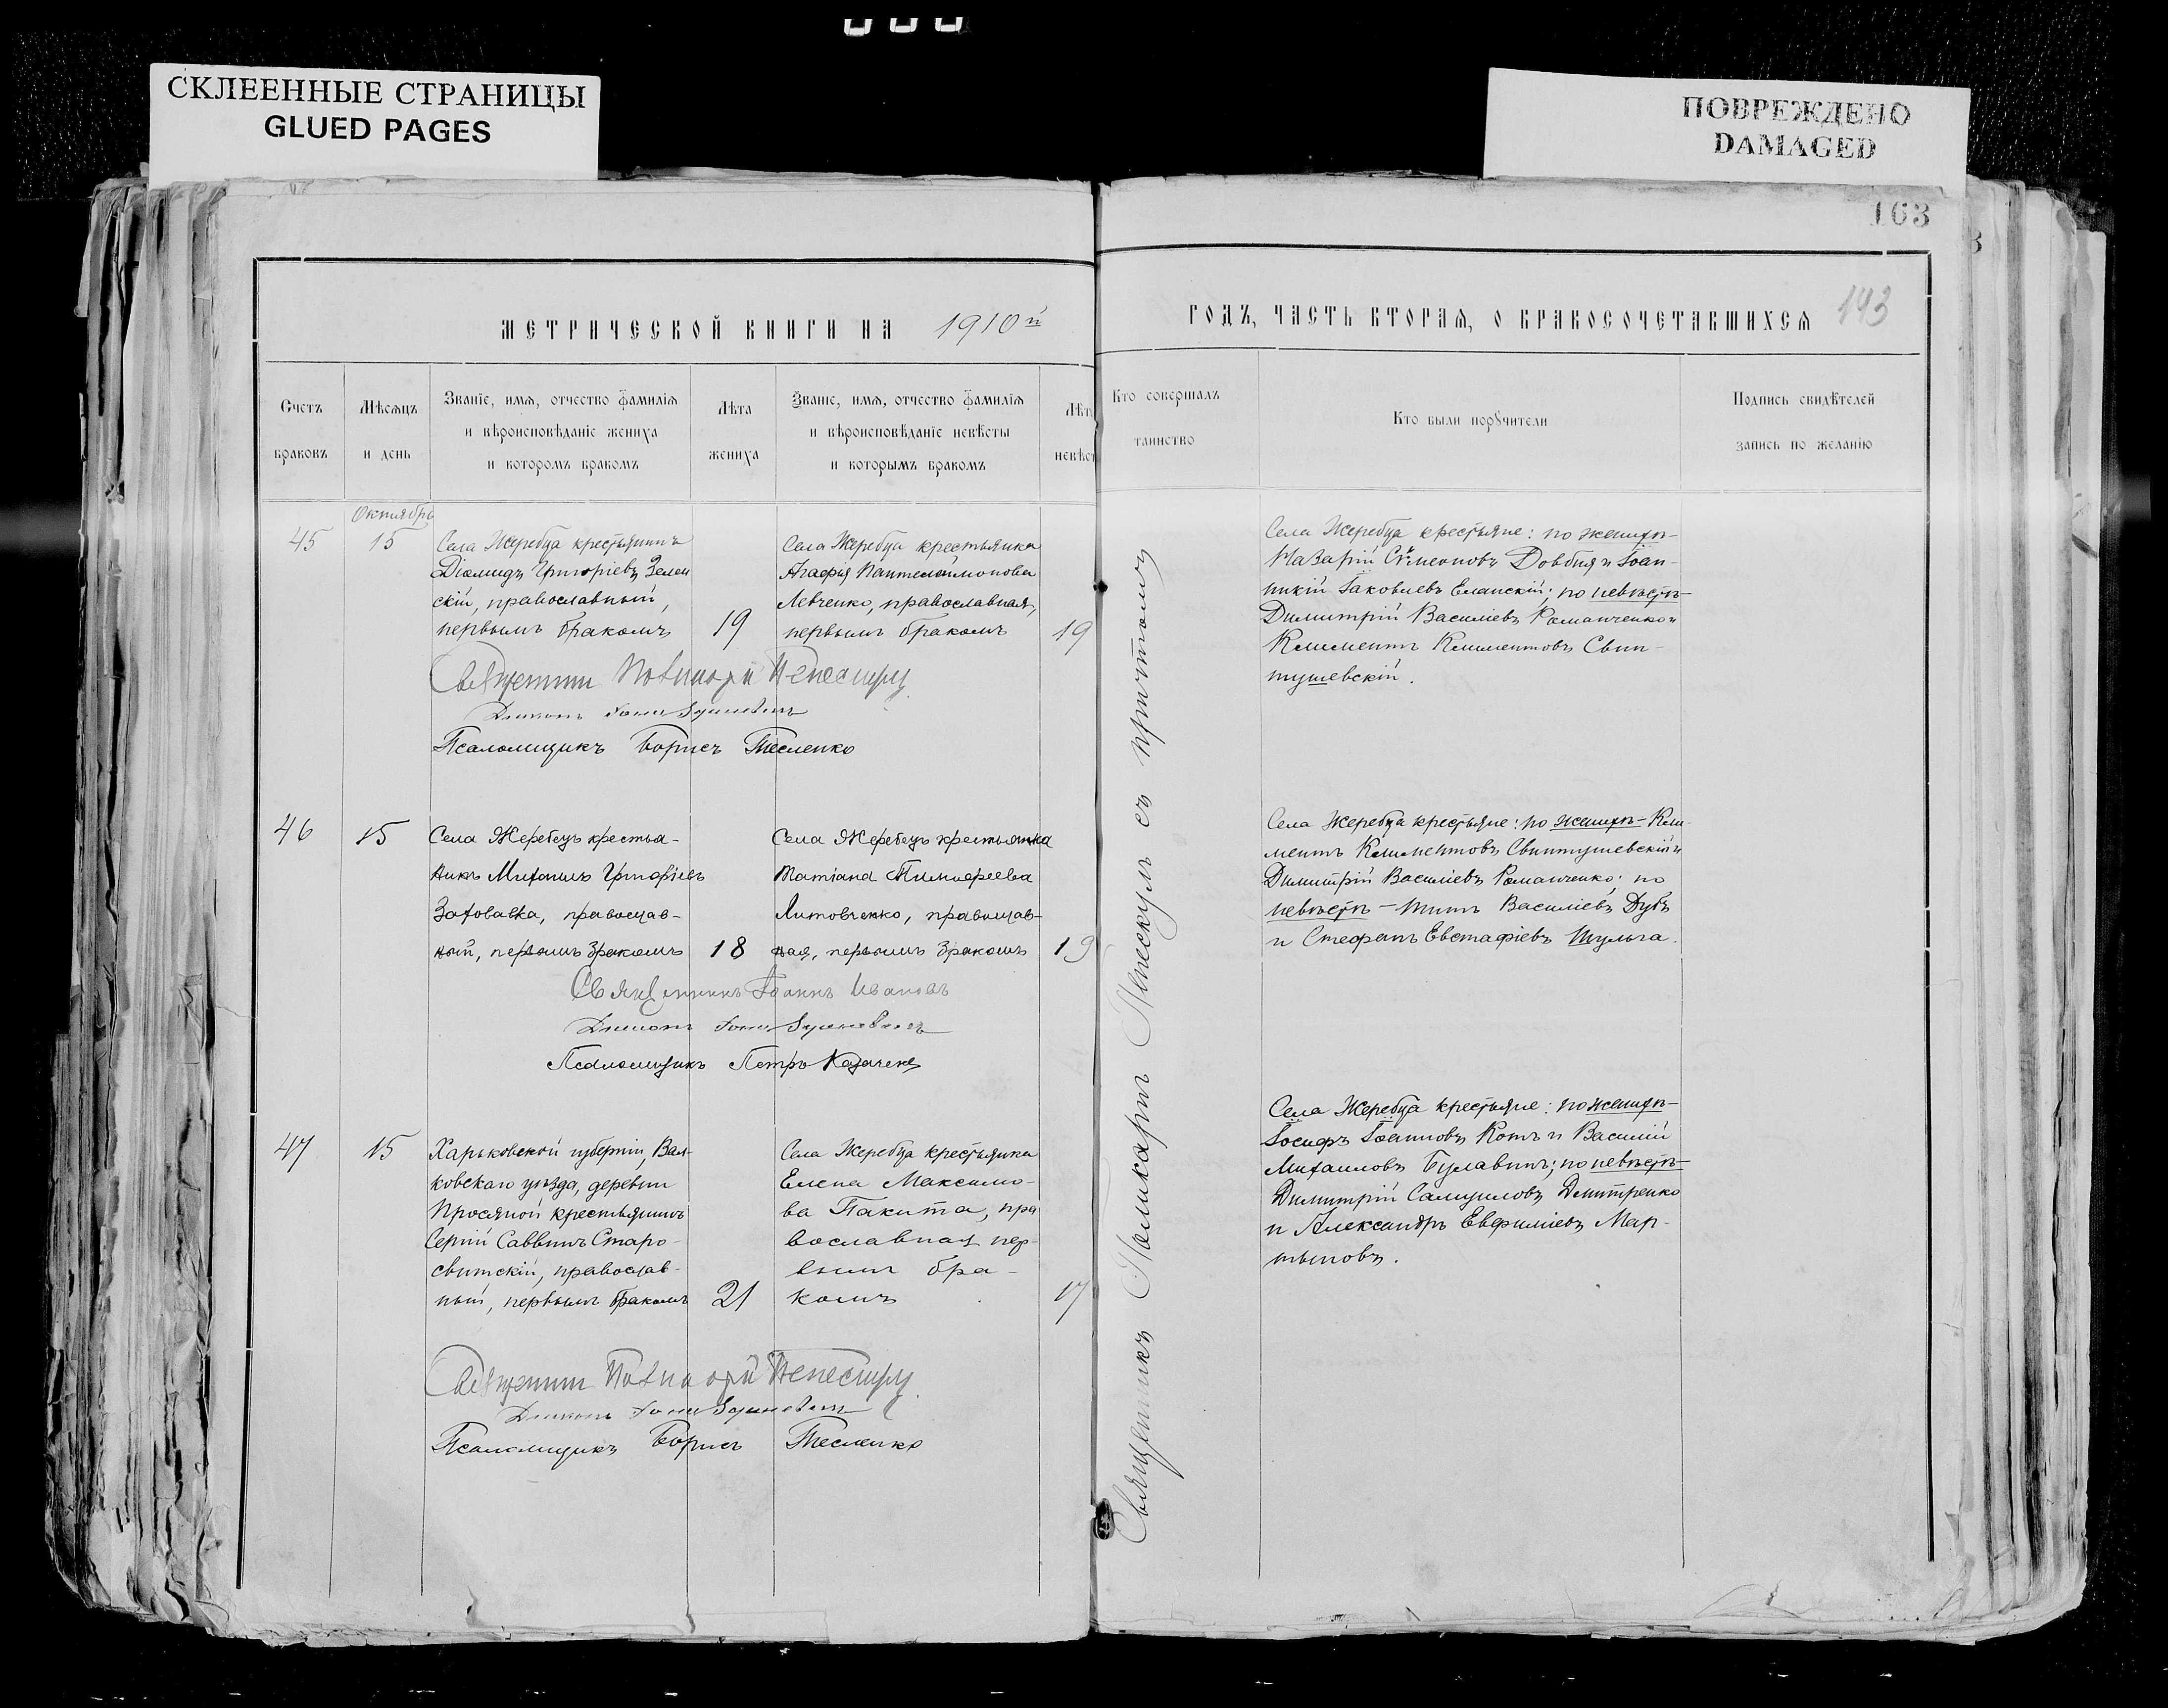 СКЛЕЕННЫЕ СТРАНИЦЫ
GLUED PAGES
ПОВРЕЖДЕНО
DAMAGED
163
МЕТРИЧЕСКОЙ КНИГИ НА 1910й
ГОДЪ, ЧАСТЬ ВТОРАЯ, О БРАКОСОЧЕТАВШИХСЯ
143
Счетъ
браковъ
Мѣсяцъ
и день
Званіе, имя, отчество фамилія
и вѣроисповѣданіе жениха
и которомъ бракомъ
Лѣта
жениха
Званіе, имя, отчество фамилія
и вѣроисповѣданіе невѣсты
и которымъ бракомъ
Лѣт
невѣст
Кто совершалъ
таинство
Кто были порꙋчители
Подпись свидѣтелей
запись по желанію
Октябрь
45
15
Села Жеребца крестьянинъ
Діомидъ Григоріевъ Зелен
скій, православный,
первымъ бракомъ
19
Села Жеребца крестьянка
Агафія Пантелеимонова
Левченко, православная,
первымъ бракомъ
19
Села Жеребца крестьяне: по женихѣ-
Назарій Симеоновъ Довбня и Іоан-
никій Іаковлевъ Еланскій; по невѣстѣ-
Димитрій Василіевъ Романченко и
Климентъ Климентовъ Свин-
тушевскій.
Діаконъ
Псаломщикъ Борисъ Тесленко
46
15
Села Жеребецъ крестья-
нинъ Михаилъ Григоріевъ
православ-
ный, первымъ бракомъ
18
Села Жеребецъ крестьянка
Татіана Тимофеева
Литовченко, православ-
ная, первымъ бракомъ
19
Села Жеребца крестьяне: по женихѣ-Кли-
ментъ Климентовъ Свинтушевскій и
Димитрій Василіевъ Романченко; по
невѣстѣ - Титъ Василіевъ Дубъ
и Стефанъ Евстафіевъ Шульга.
Священникъ Іоаннъ Ивановъ
Діаконъ
Псаломщикъ Петръ
47
15
Харьковской губерніи, Вал-
ковскаго уѣзда, деревни
Просяной крестьянинъ
Сергій Саввинъ Старо-
свитскій, православ-
ный, первымъ бракомъ
21
Села Жеребца крестьянка
Елена Максимо-
ва Пакита, пра
вославная пер-
вымъ бра-
комъ
17
Села Жеребца крестьяне: по женихѣ-
Іосифъ Іоанновъ Котъ и Василій
Михаиловъ Булавинъ; по невѣстѣ-
Димитрій Самуиловъ Дмитренко
и Александръ Евфиміевъ Мар-
тыновъ.
Діаконъ
Псаломщикъ Борисъ Тесленко
Священникъ Поликарпъ съ причтомъ